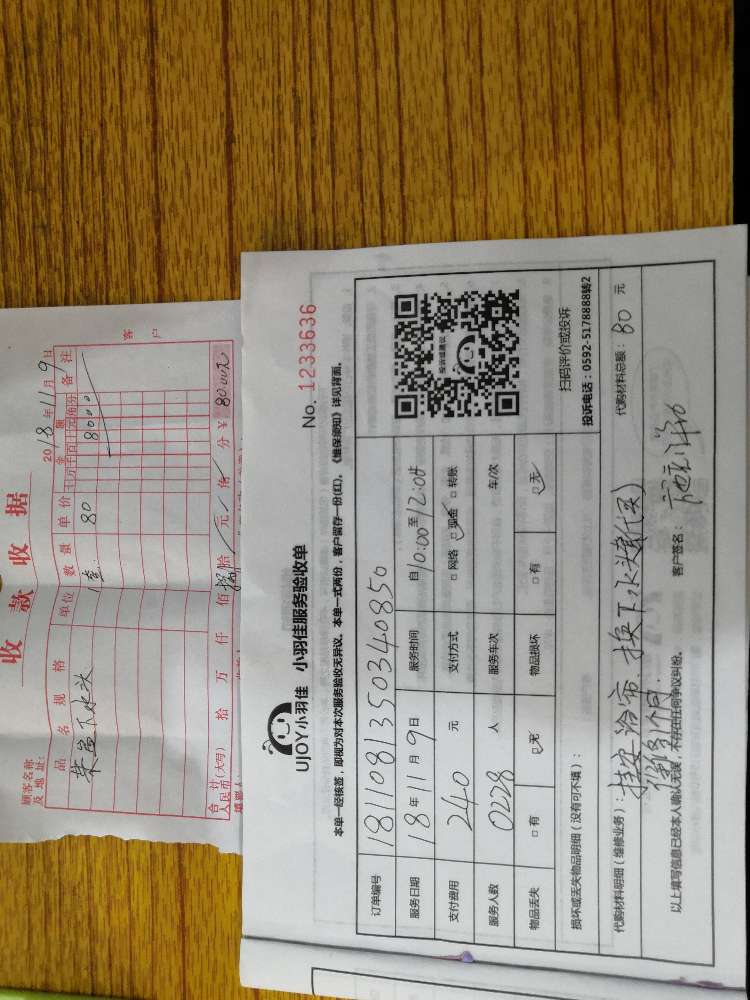 收款收据
2018年11月9日
顾客名称
及地址:
品名 规格 单位 数量 单价 金额 备注
十万千百十元角分
菜盆下水头 壹 80 8000
合计
人民币(大写) 拾 万 仟 佰 捌拾 元 角 分 ¥ 80.00元
客户
UJOY小羽佳 小羽佳服务验收单
No. 1233636
本单一经接签,即视为对本次服务验收无异议。本单一式两份,客户留存一份(红)。《维保须知》详见背面。
订单编号 1811081350340850
服务日期 18年11月9日 服务时间 自10:00至12:04
支付费用 240 元 支付方式 □网络 □现金 □转账
服务人数 0228 人 服务车次 车/次
物品丢失 □有 □无 物品损坏 □有 □无
投诉或建议
扫码评价或投诉
投诉电话:0592-5178888转2
损坏或丢失物品明细(没有可不填):
代购材料明细(维修业务): 代购材料总额: 80 元
挂安浴帘、换下水头套(代买)
以上填写信息已经本人确认无误,不存在任何争议纠纷。 客户签名: